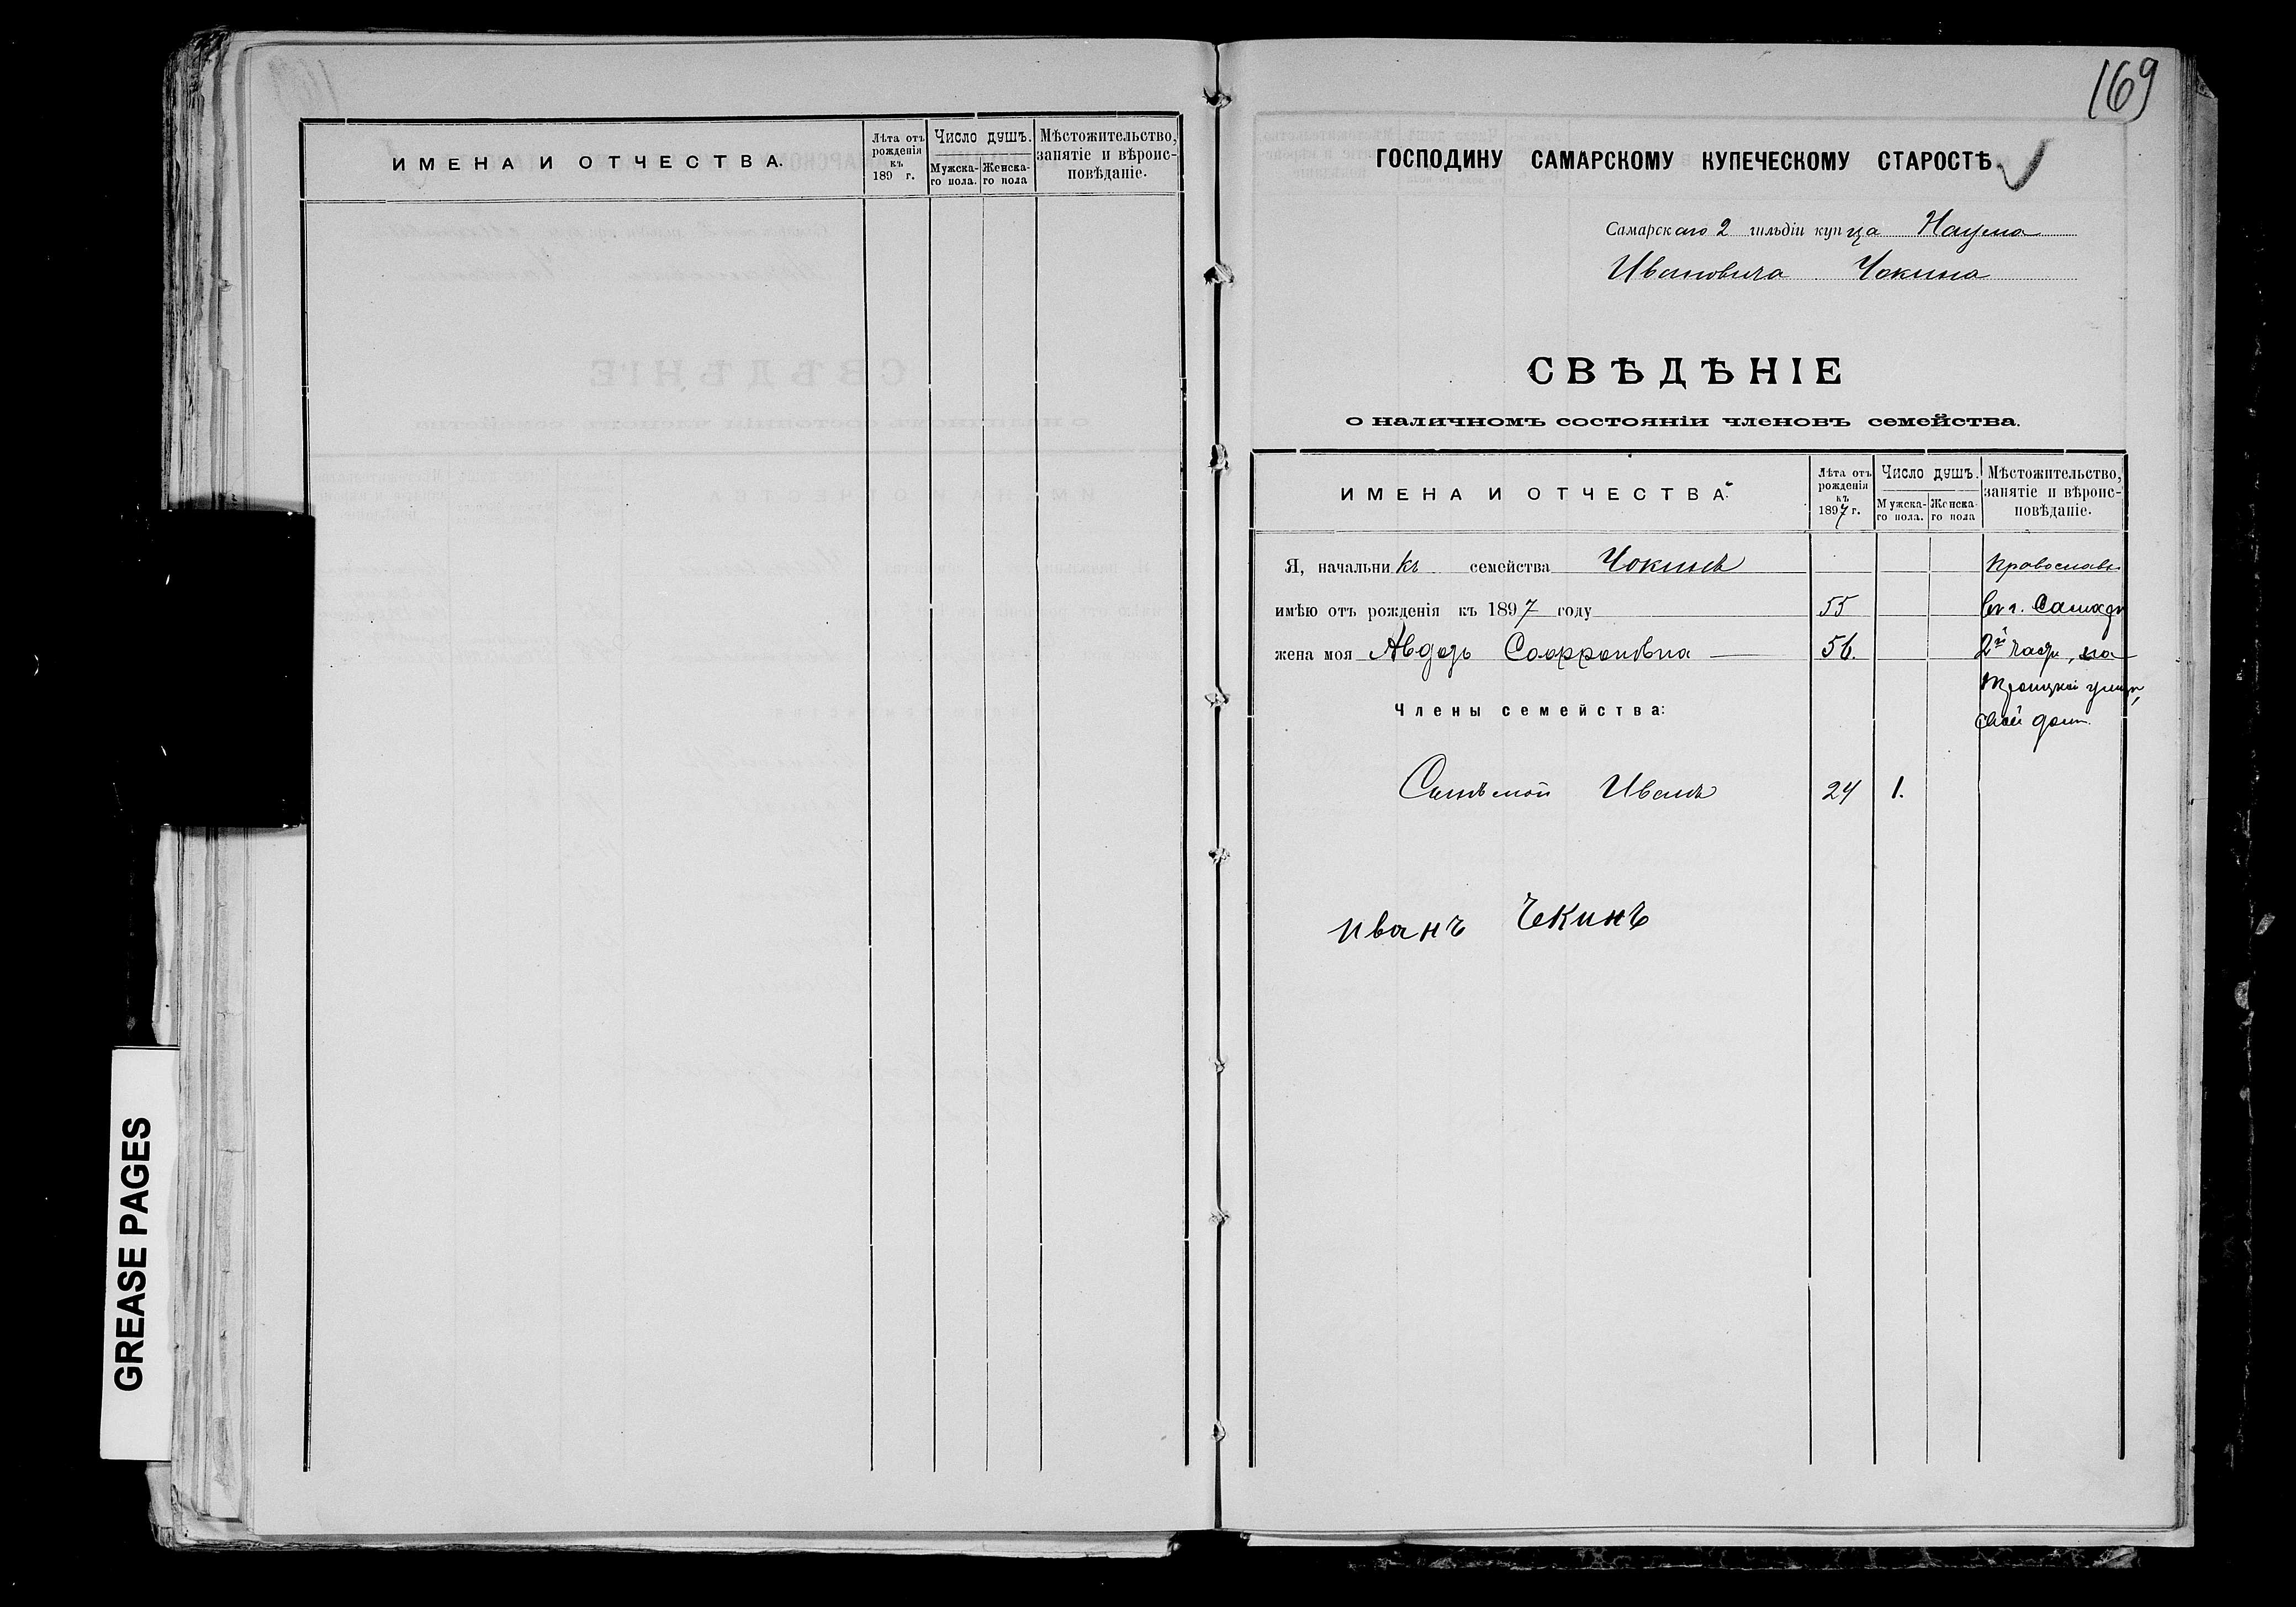 ИМЕНА И ОТЧЕСТВА.
Лѣта отъ рожденія къ 189 г.
Число душъ.
Мужска-го пола.
Женска-го пола
Мѣстожительство, занятіе и вѣроис-повѣданіе.
GREASE PAGES
169
ГОСПОДИНУ САМАРСКОМУ КУПЕЧЕСКОМУ СТАРОСТѢ
Самарскаго 2 гильдіи купца Наума
Ивановича Чокина
СВѢДѢНІЕ
о наличномъ состояніи членовъ семейства.
ИМЕНА И ОТЧЕСТВА.
Лѣта отъ рожденія къ 1897 г.
Число душъ.
Мужска-го пола.
Женска-го пола
Мѣстожительство, занятіе и вѣроис-повѣданіе.
Я, начальникъ семейства Чокинъ
имѣю отъ рожденія къ 1897 году 55
жена моя Авдотья Софроновна 56.
Православн
Въ г. Самарѣ
2й части, на
Троицкой улицѣ,
свой домъ.
Члены семейства:
Сынъ мой Иванъ 24 1.
Иванъ Чекинъ